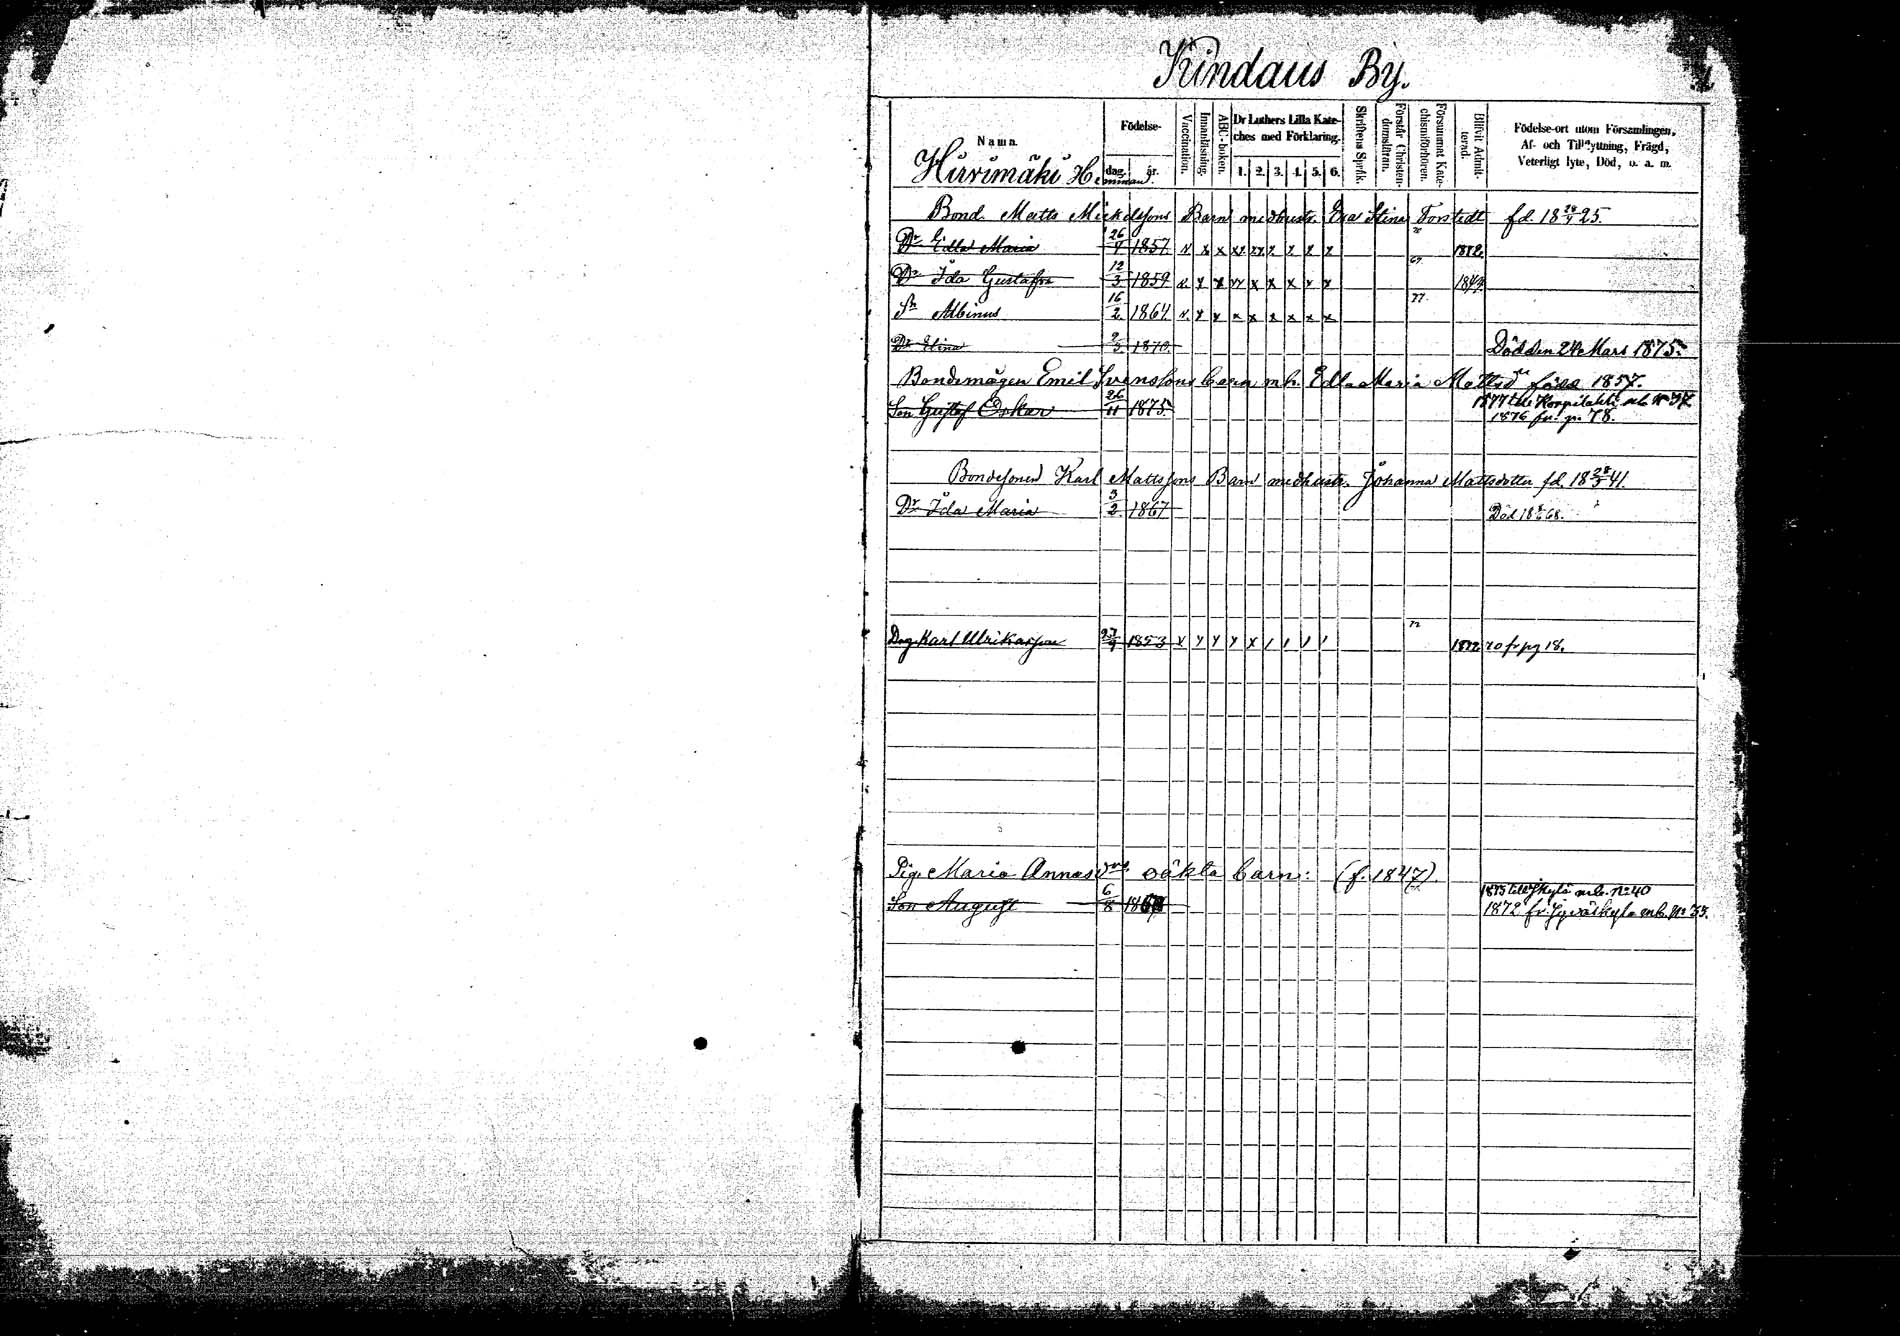 Kindaus By.
Namn.
Födelse-
dag. år.
Vaccination.
Innanläsning.
ABC-boken.
Dr Luthers Lilla Kate-
ches med Förklaring.
1. 2. 3. 4. 5. 6.
Skriftens Språk.
Förstår Christen-
domsläran.
Försummat Kate-
chismiförhören.
Blifvit Admit-
terad.
Födelse-ort utom Församlingen,
Af- och Tillflyttning, Frägd,
Veterligt lyte, Död, o. a. m.
Hirvimäki Hemman.
Bond. Matts Mickelssons Barn med hustr. Eva Stina Forstedt fd. 18 25.
Dr Edla Maria 26/4 1857. v. x x xx xx x x x x 1872.
Dr Ida Gustafva 12/3 1859 v. x x xx x x x x x
Sn Albinus 16/2 1864 v. x x x x x x x x 77.
Dr Elina 9/3 1870. Död den 24 Mars 1875.
Bondemågen Emil Svenssons barn m. h. Edla Maria Mattsdr född 1857.
1877 till mb. No 37
Son Gustaf Oskar 26/11 1875. 1876 fr. p. 78.
Bondesonen Karl Mattssons Barn med hustr. Johanna Mattsdotter fd. 18 28/5 41.
Dr Ida Maria 3/2 1867 Död 18 68.
Drg. Karl Ulriksson 27/9 1853 x x x x x / / / / 1872 70 fr pg 18.
Pig. Maria Annasdrs oäkta barn: (f. 1847).
1873 till Jkylä mb. No 40
Son August 6/8 1872 fr. Jyväskylä mb. No 35.